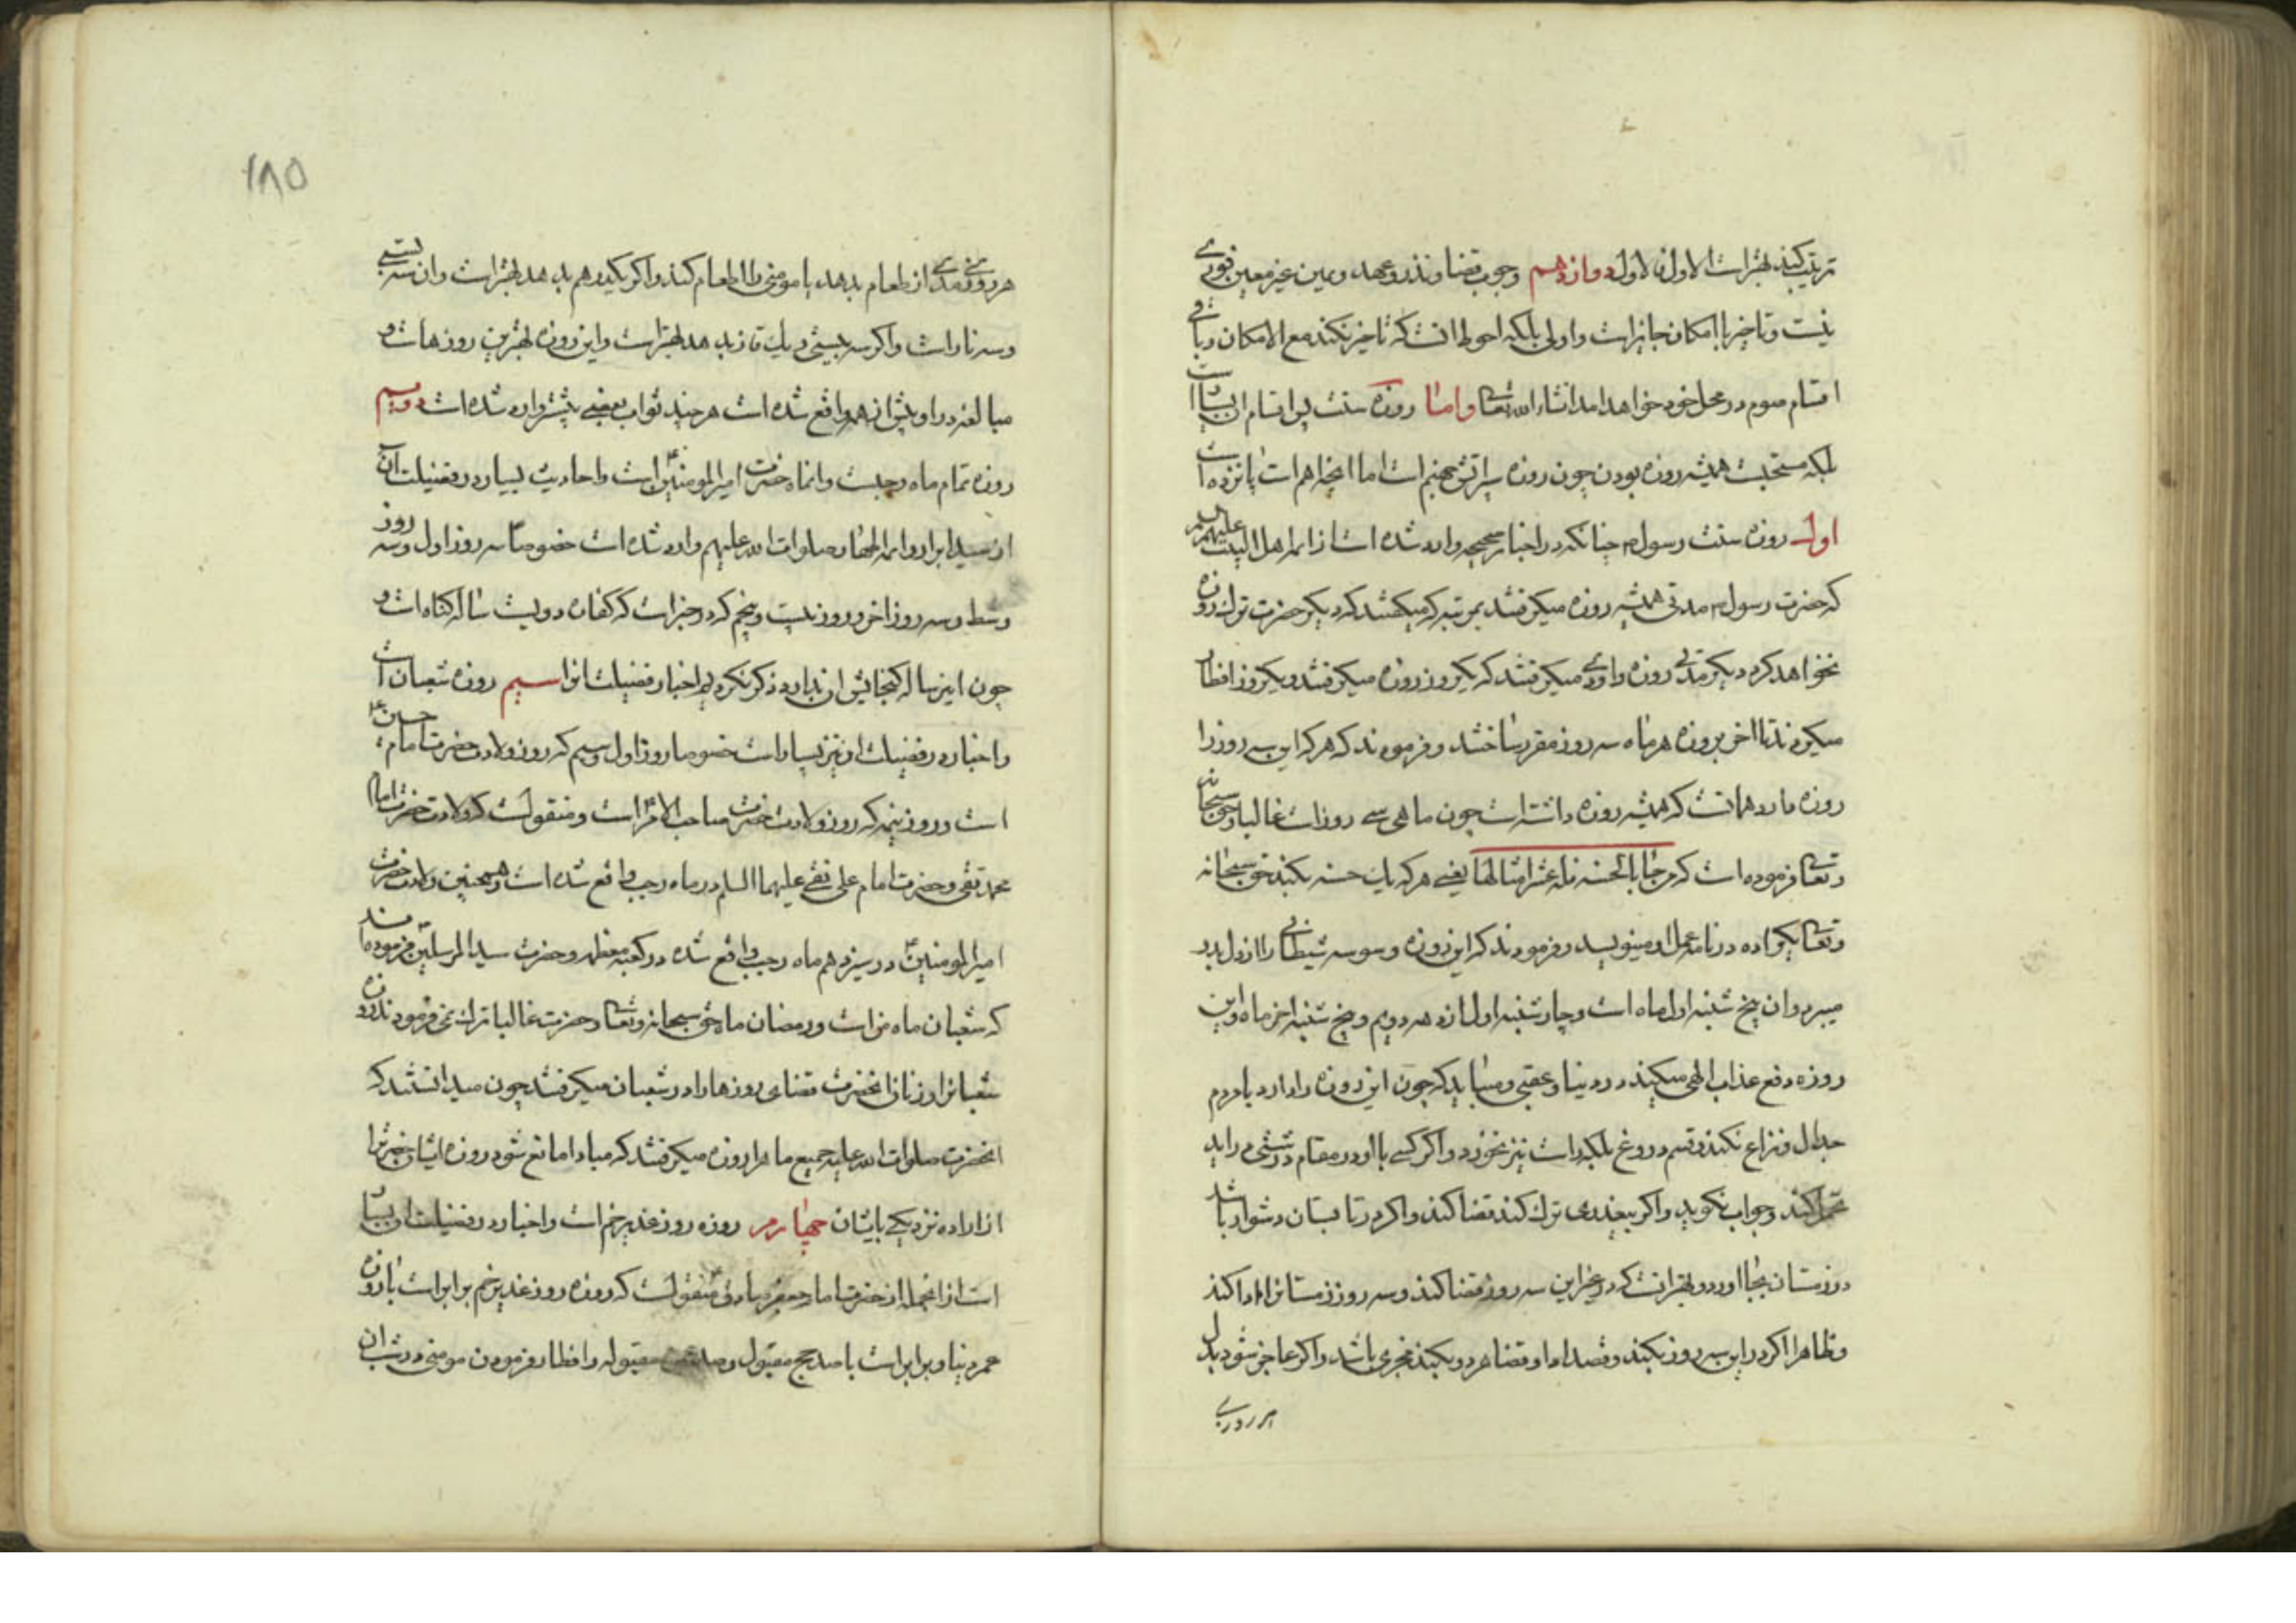 ترتیب کند بهتر است الاول فالاول دوازدهم وجوب قضا و نذر و عهد و یمین غیر معین فوری
نیست و تاخیر با امکان جایز است و اولی بلکه احوط انست که تاخیر نکند مع الامکان و باقی
اقسام صوم در محل خود خواهد امد انشاء الله تعالی و اما روزه سنت پس اقسام ان بسیار است
بلکه مستحبست همیشه روزه بودن چون روزه سپر اتش جهنم است اما انچه اهم است پانزده است
اول روزه سنت رسول م چنانکه در اخبار صحیحه وارد شده است از ائمه اهل البیت علیهم السلم
که حضرت رسول م مدتی همیشه روزه میکرفتند بمرتبه که میکفتند که دیکر حضرت ترک روزه
نخواهد کرد دیکر مدتی روزه داودی میکرفتند که یکروز روزه میکرفتند و یکروز افطار
میکردند تا اخر بروزه هر ماه سه روز مقرر ساختند و فرمودند که هر که این سه روز را
روزه دارد همانست که همیشه روزه داشته است چون ماهی سی روز است غالبا و حق سبحانه
و تعالی فرموده است که من جاء بالحسنة فله عشر امثالها یعنی هر که یک حسنه بکند حق سبحانه
و تعالی یکیرا ده در نامه عمل او مینویسد و فرمودند که این روزه وسوسه شیطانی را از دل بدر
میبرد و ان پنج شنبه اول ماه است و چار شنبه اول از دهه دویم و پنج شنبه اخر ماه و این
روزه دفع عذاب الهی میکند در دنیا و عقبی و میباید که چون این روزه را دارد با مردم
جدال و نزاع نکند و قسم دروغ بلکه راست نیز نخورد و اکر کسی با او در مقام درشتی در اید
تحمل کند و جواب نکوید و اکر بیعذری ترک کند قضا کند و اکر در تابستان دشوار باشد
در زمستان بجا اورد و بهتر انست که در غیر این سه روز قضا کند و سه روز زمستانرا ادا کند
و ظاهرا اکر در این سه روز بکند و قصد ادا و قضا هر دو بکند مجزی باشد و اکر عاجز شود بدل
هر روزی
۱۸۵
هر روزی مدی از طعام بدهد یا مومنی را اطعام کند و اکر یکدرهم بدهد بهتر است و ان سه بیستی
و سه نار است و اکر سه بیستی و یک قاز بدهد بهتر است و این روزه بهترین روزهاست و
مبالغه در او بیش از همه واقع شده است هر چند ثواب بعضی بیشتر وارد شده است دویم
روزه تمام ماه رجبست و انماه حضرت امیر المومنین است و احادیث بسیار در فضیلت آن
از سید ابرار و ائمه اطهار صلوات الله علیهم وارد شده است خصوصا سه روز اول و سه روز
وسط و سه روز اخر و روز بیست و پنجم که در خبر است که کفاره دویست ساله کناه است و
چون این رساله کنجایش ان ندارد ذکر نکردیم اخبار فضیلت انرا سیم روزه شعبان است
و اخبار در فضیلت او نیز بسیار است خصوصا روز اول و سیم که روز ولادت حضرت امام حسین
است و روز نیمه که روز ولادت حضرت صاحب الامر است و منقولست که ولادت حضرت امام
محمد تقی و حضرت امام علی نقی علیهما السلم در ماه رجب واقع شده است و همچنین ولادت حضرت
امیر المومنین در سیزدهم ماه رجب واقع شده در کعبه معظمه و حضرت سید المرسلین فرموده‌اند
که شعبان ماه من است و رمضان ماه حق سبحانه و تعالی و حضرت غالبا ترک نمی فرمودند روزه
شعبانرا و زنان انحضرت قضای روزها را در شعبان میکرفتند چون میدانستند که
انحضرت صلوات الله علیه جمیع ماه را روزه میکرفتند که مبادا مانع شود روزه ایشان حضرترا
از اراده نزدیکی بایشان چهارم روزه روز غدیر خم است و اخبار در فضیلت او بسیار
است از انجمله از حضرت امام جعفر صادق منقولست که روزه روز غدیر خم برابر است با روزه
عمر دنیا و برابر است با صد حج مقبول و صد عمره مقبوله و افطار فرمودن مومنی در شب ان